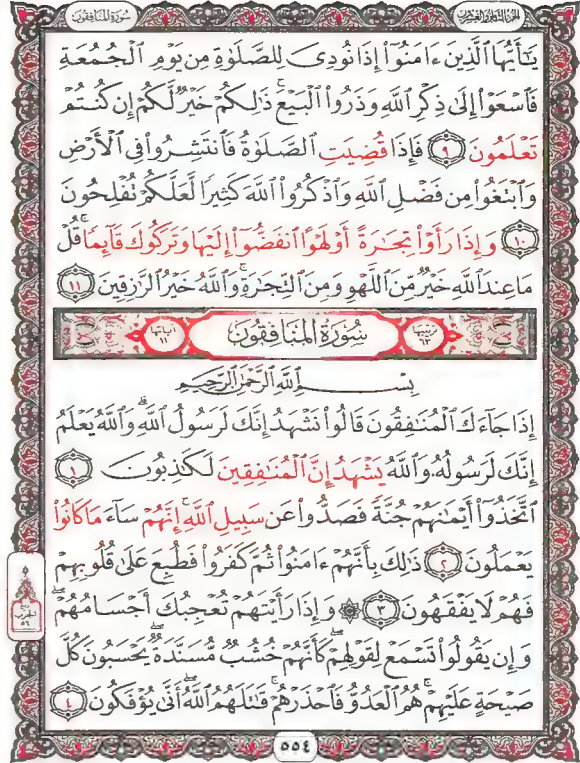 الجزء الثامن والعشرون
سُورَةُ المُنَافِقُونَ
يَٰٓأَيُّهَا ٱلَّذِينَ ءَامَنُوٓا۟ إِذَا نُودِىَ لِلصَّلَوٰةِ مِن يَوْمِ ٱلْجُمُعَةِ
فَٱسْعَوْا۟ إِلَىٰ ذِكْرِ ٱللَّهِ وَذَرُوا۟ ٱلْبَيْعَ ۚ ذَٰلِكُمْ خَيْرٌ لَّكُمْ إِن كُنتُمْ
تَعْلَمُونَ ٩ فَإِذَا قُضِيَتِ ٱلصَّلَوٰةُ فَٱنتَشِرُوا۟ فِى ٱلْأَرْضِ
وَٱبْتَغُوا۟ مِن فَضْلِ ٱللَّهِ وَٱذْكُرُوا۟ ٱللَّهَ كَثِيرًا لَّعَلَّكُمْ تُفْلِحُونَ
١٠ وَإِذَا رَأَوْا۟ تِجَٰرَةً أَوْ لَهْوًا ٱنفَضُّوٓا۟ إِلَيْهَا وَتَرَكُوكَ قَآئِمًا ۚ قُلْ
مَا عِندَ ٱللَّهِ خَيْرٌ مِّنَ ٱللَّهْوِ وَمِنَ ٱلتِّجَٰرَةِ ۚ وَٱللَّهُ خَيْرُ ٱلرَّٰزِقِينَ ١١
ترتيبها ٦٣ سُورَةُ المُنَافِقُونَ آياتها ١١
بِسْمِ ٱللَّهِ ٱلرَّحْمَٰنِ ٱلرَّحِيمِ
إِذَا جَآءَكَ ٱلْمُنَٰفِقُونَ قَالُوا۟ نَشْهَدُ إِنَّكَ لَرَسُولُ ٱللَّهِ ۗ وَٱللَّهُ يَعْلَمُ
إِنَّكَ لَرَسُولُهُۥ وَٱللَّهُ يَشْهَدُ إِنَّ ٱلْمُنَٰفِقِينَ لَكَٰذِبُونَ ١
ٱتَّخَذُوٓا۟ أَيْمَٰنَهُمْ جُنَّةً فَصَدُّوا۟ عَن سَبِيلِ ٱللَّهِ ۚ إِنَّهُمْ سَآءَ مَا كَانُوا۟
يَعْمَلُونَ ٢ ذَٰلِكَ بِأَنَّهُمْ ءَامَنُوا۟ ثُمَّ كَفَرُوا۟ فَطُبِعَ عَلَىٰ قُلُوبِهِمْ
فَهُمْ لَا يَفْقَهُونَ ٣ ۞ وَإِذَا رَأَيْتَهُمْ تُعْجِبُكَ أَجْسَامُهُمْ ۖ
وَإِن يَقُولُوا۟ تَسْمَعْ لِقَوْلِهِمْ ۖ كَأَنَّهُمْ خُشُبٌ مُّسَنَّدَةٌ ۖ يَحْسَبُونَ كُلَّ
صَيْحَةٍ عَلَيْهِمْ ۚ هُمُ ٱلْعَدُوُّ فَٱحْذَرْهُمْ ۚ قَٰتَلَهُمُ ٱللَّهُ ۖ أَنَّىٰ يُؤْفَكُونَ ٤
ربع
الحزب
٥٦
٥٥٤